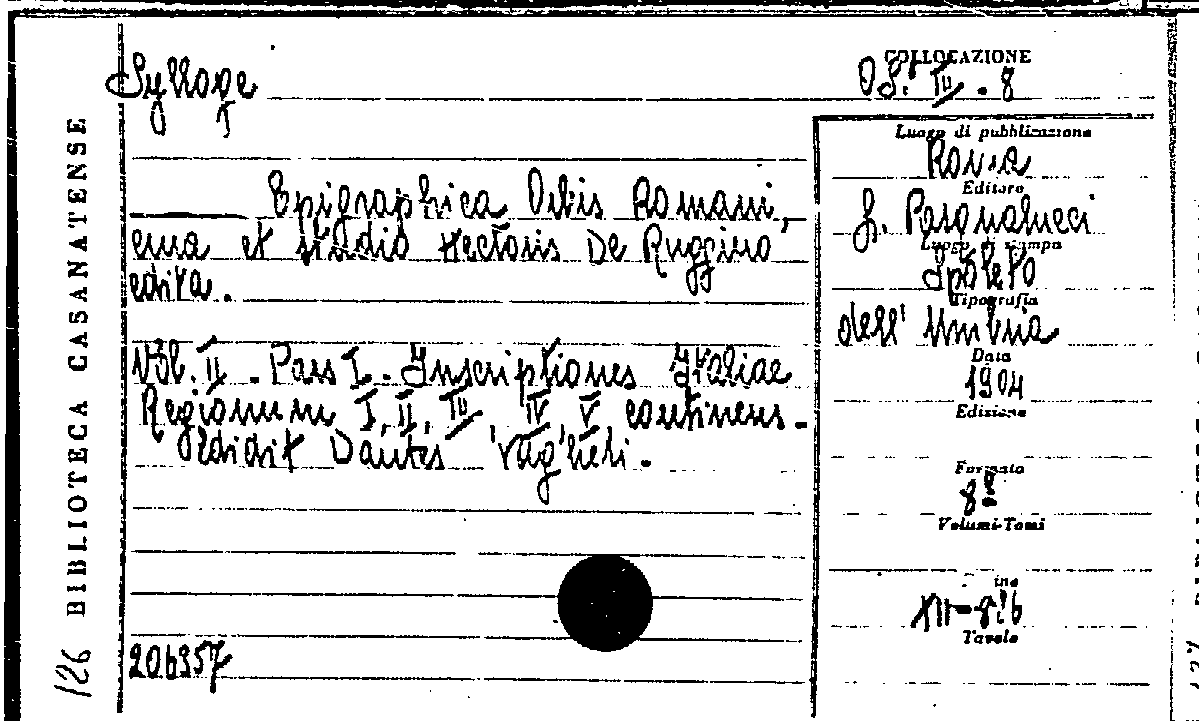 COLLOCAZIONE
Sylloge
OS. III. 8
Epigraphica Orbis Romani,
cura et studio Hectoris De Ruggiero
edita.
Vol. II. Pars I. Inscriptiones Italiae
Regionum I, II, III, IV, V continens.
Edidit Dantes Vaglieri.
206357
Luogo di pubblicazione
Roma
Editore
L. Pasqualucci
Luogo di stampa
Spoleto
Tipografia
dell' Umbria
Data
1904
Edizione
Formato
8º
Volumi-Tomi
Tavole
BIBLIOTECA CASANATENSE
126